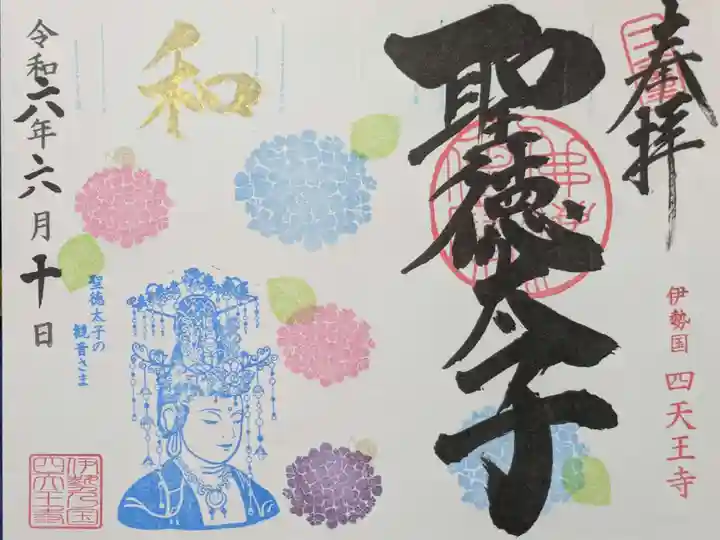 奉拝
聖徳太子
伊勢国 四天王寺
和
聖徳太子の
観音さま
令和六年六月十日
伊勢国
四天王寺